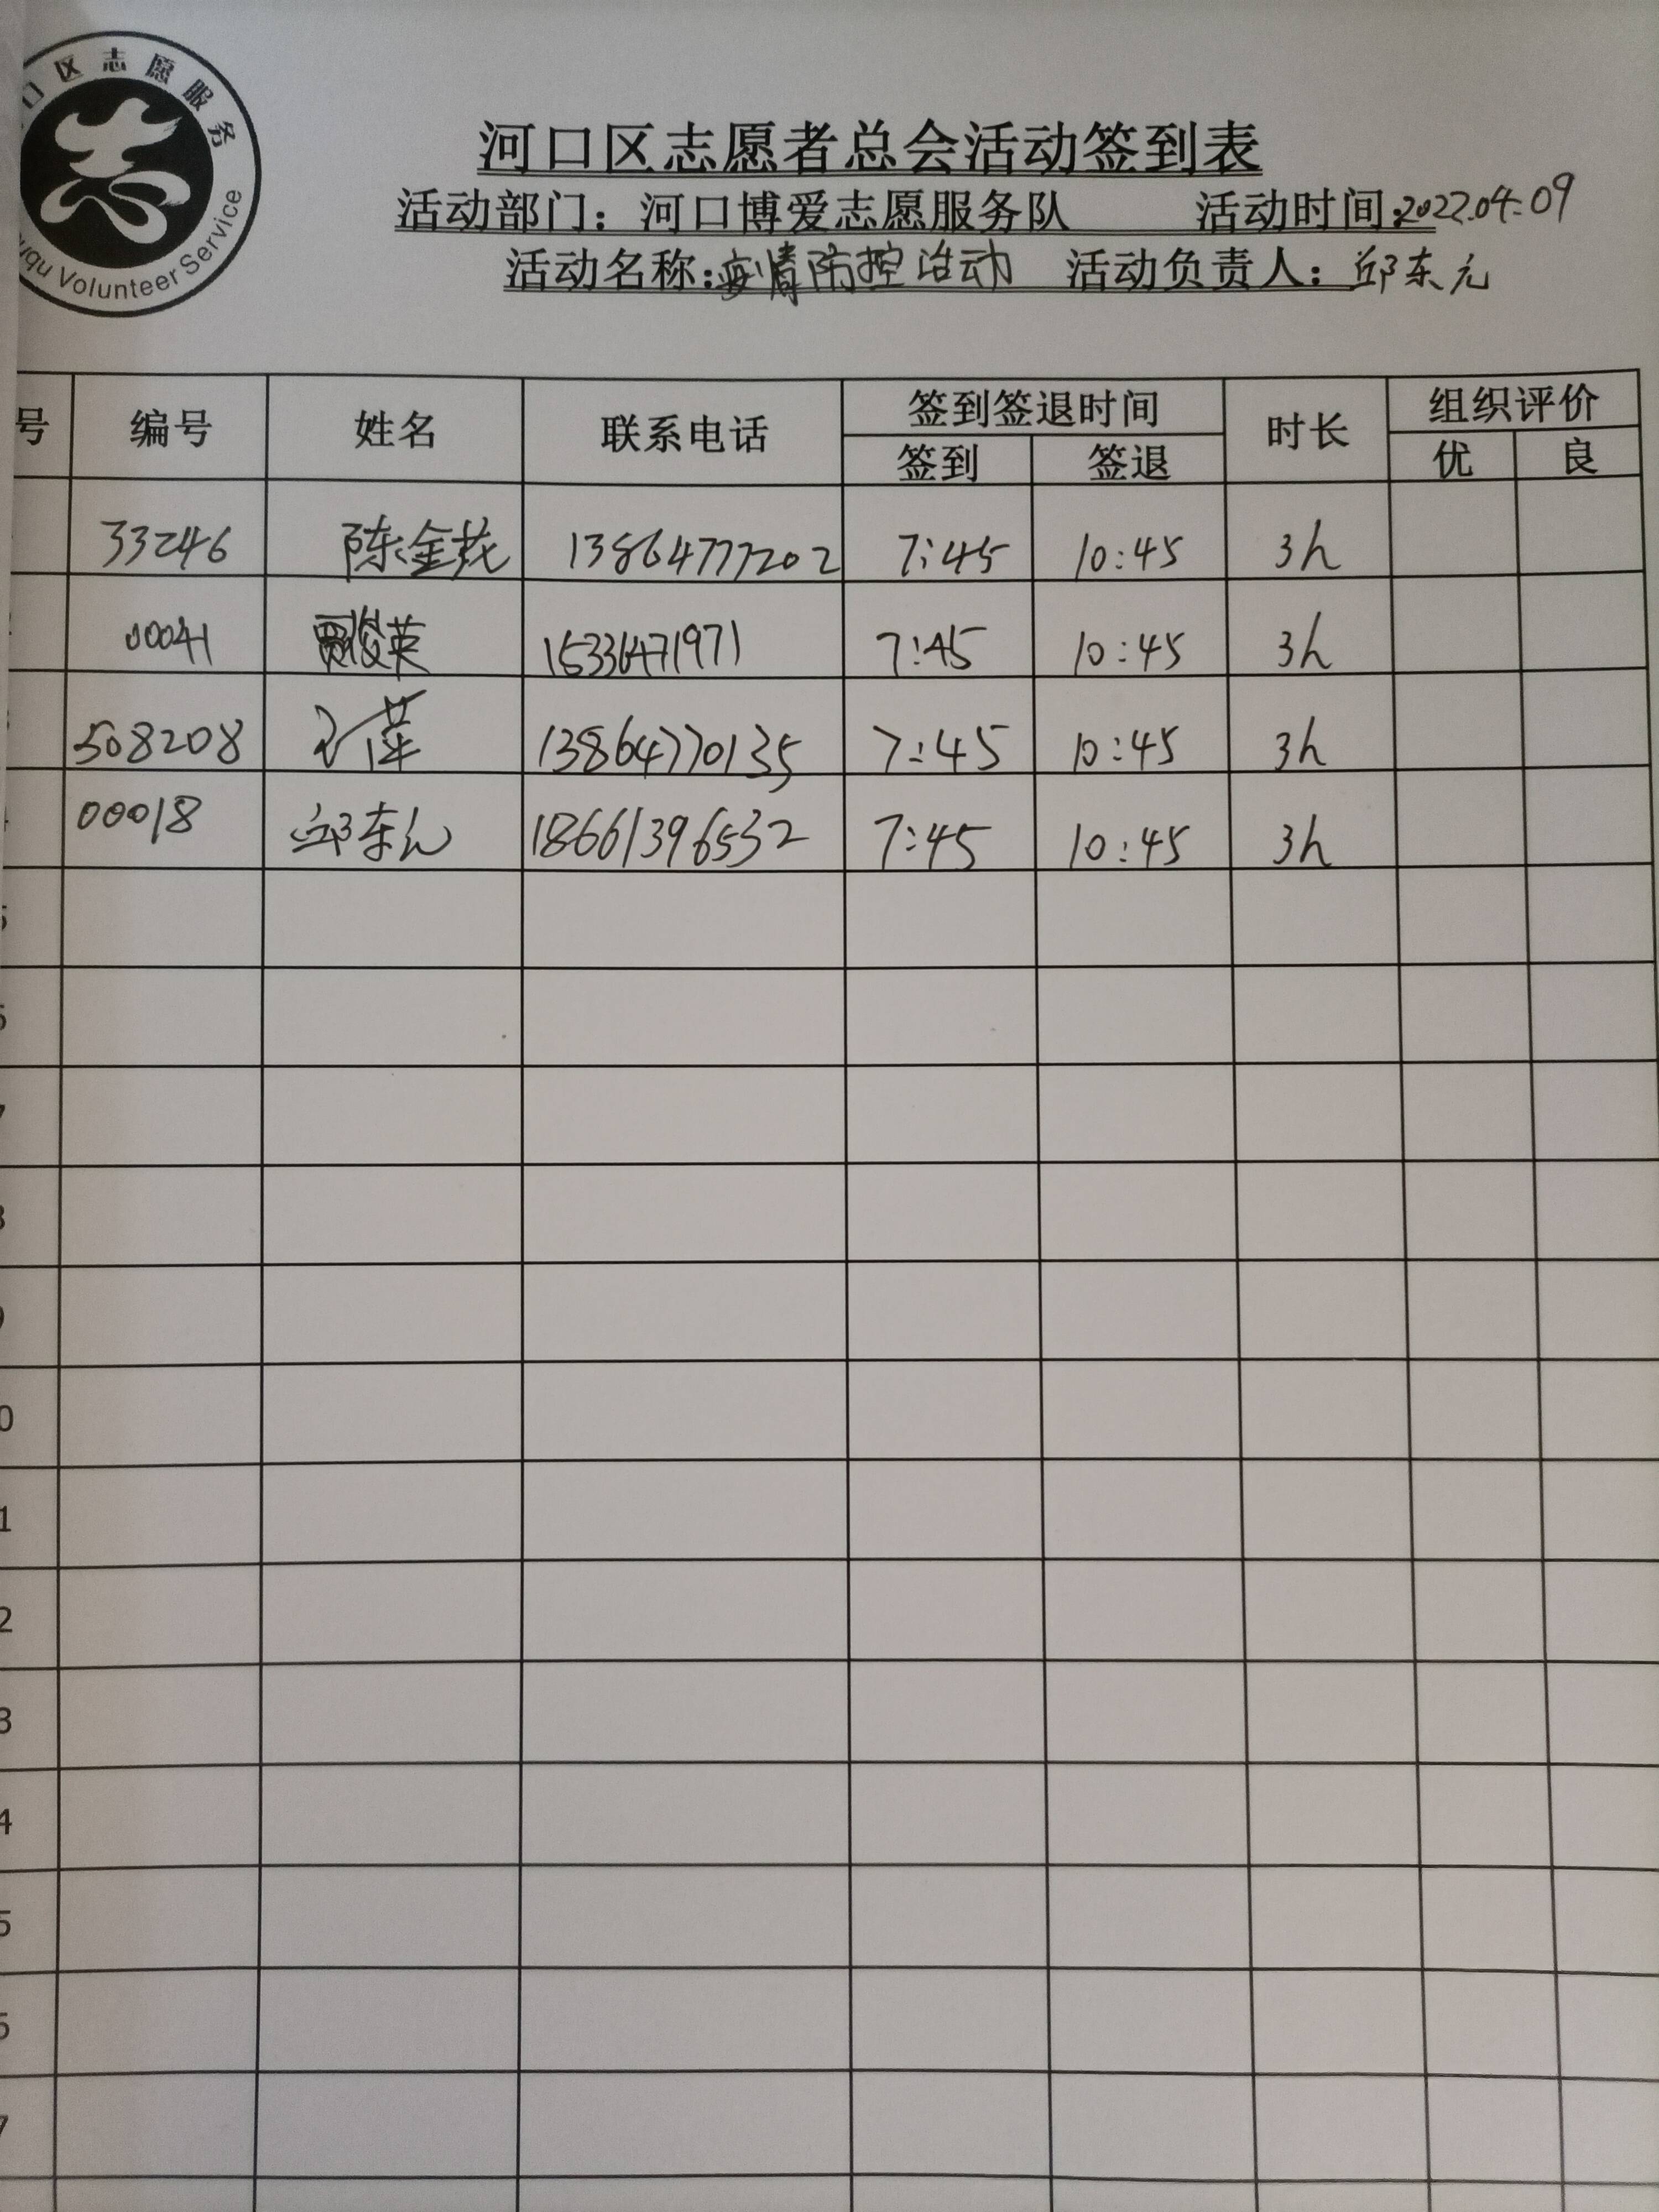 口区志愿服务
uqu Volunteer Service
河口区志愿者总会活动签到表
活动部门：河口博爱志愿服务队 活动时间：2022.04.09
活动名称：疫情防控活动 活动负责人：邱东元
号 编号 姓名 联系电话 签到签退时间 时长 组织评价
签到 签退 优 良
33246 陈金花 13864777202 7:45 10:45 3h
2 00041 贾俊英 15336471971 7:45 10:45 3h
3 508208 王萍 13864770135 7:45 10:45 3h
4 00018 邱东元 18661396532 7:45 10:45 3h
5
6
7
8
9
0
1
2
3
4
5
6
7